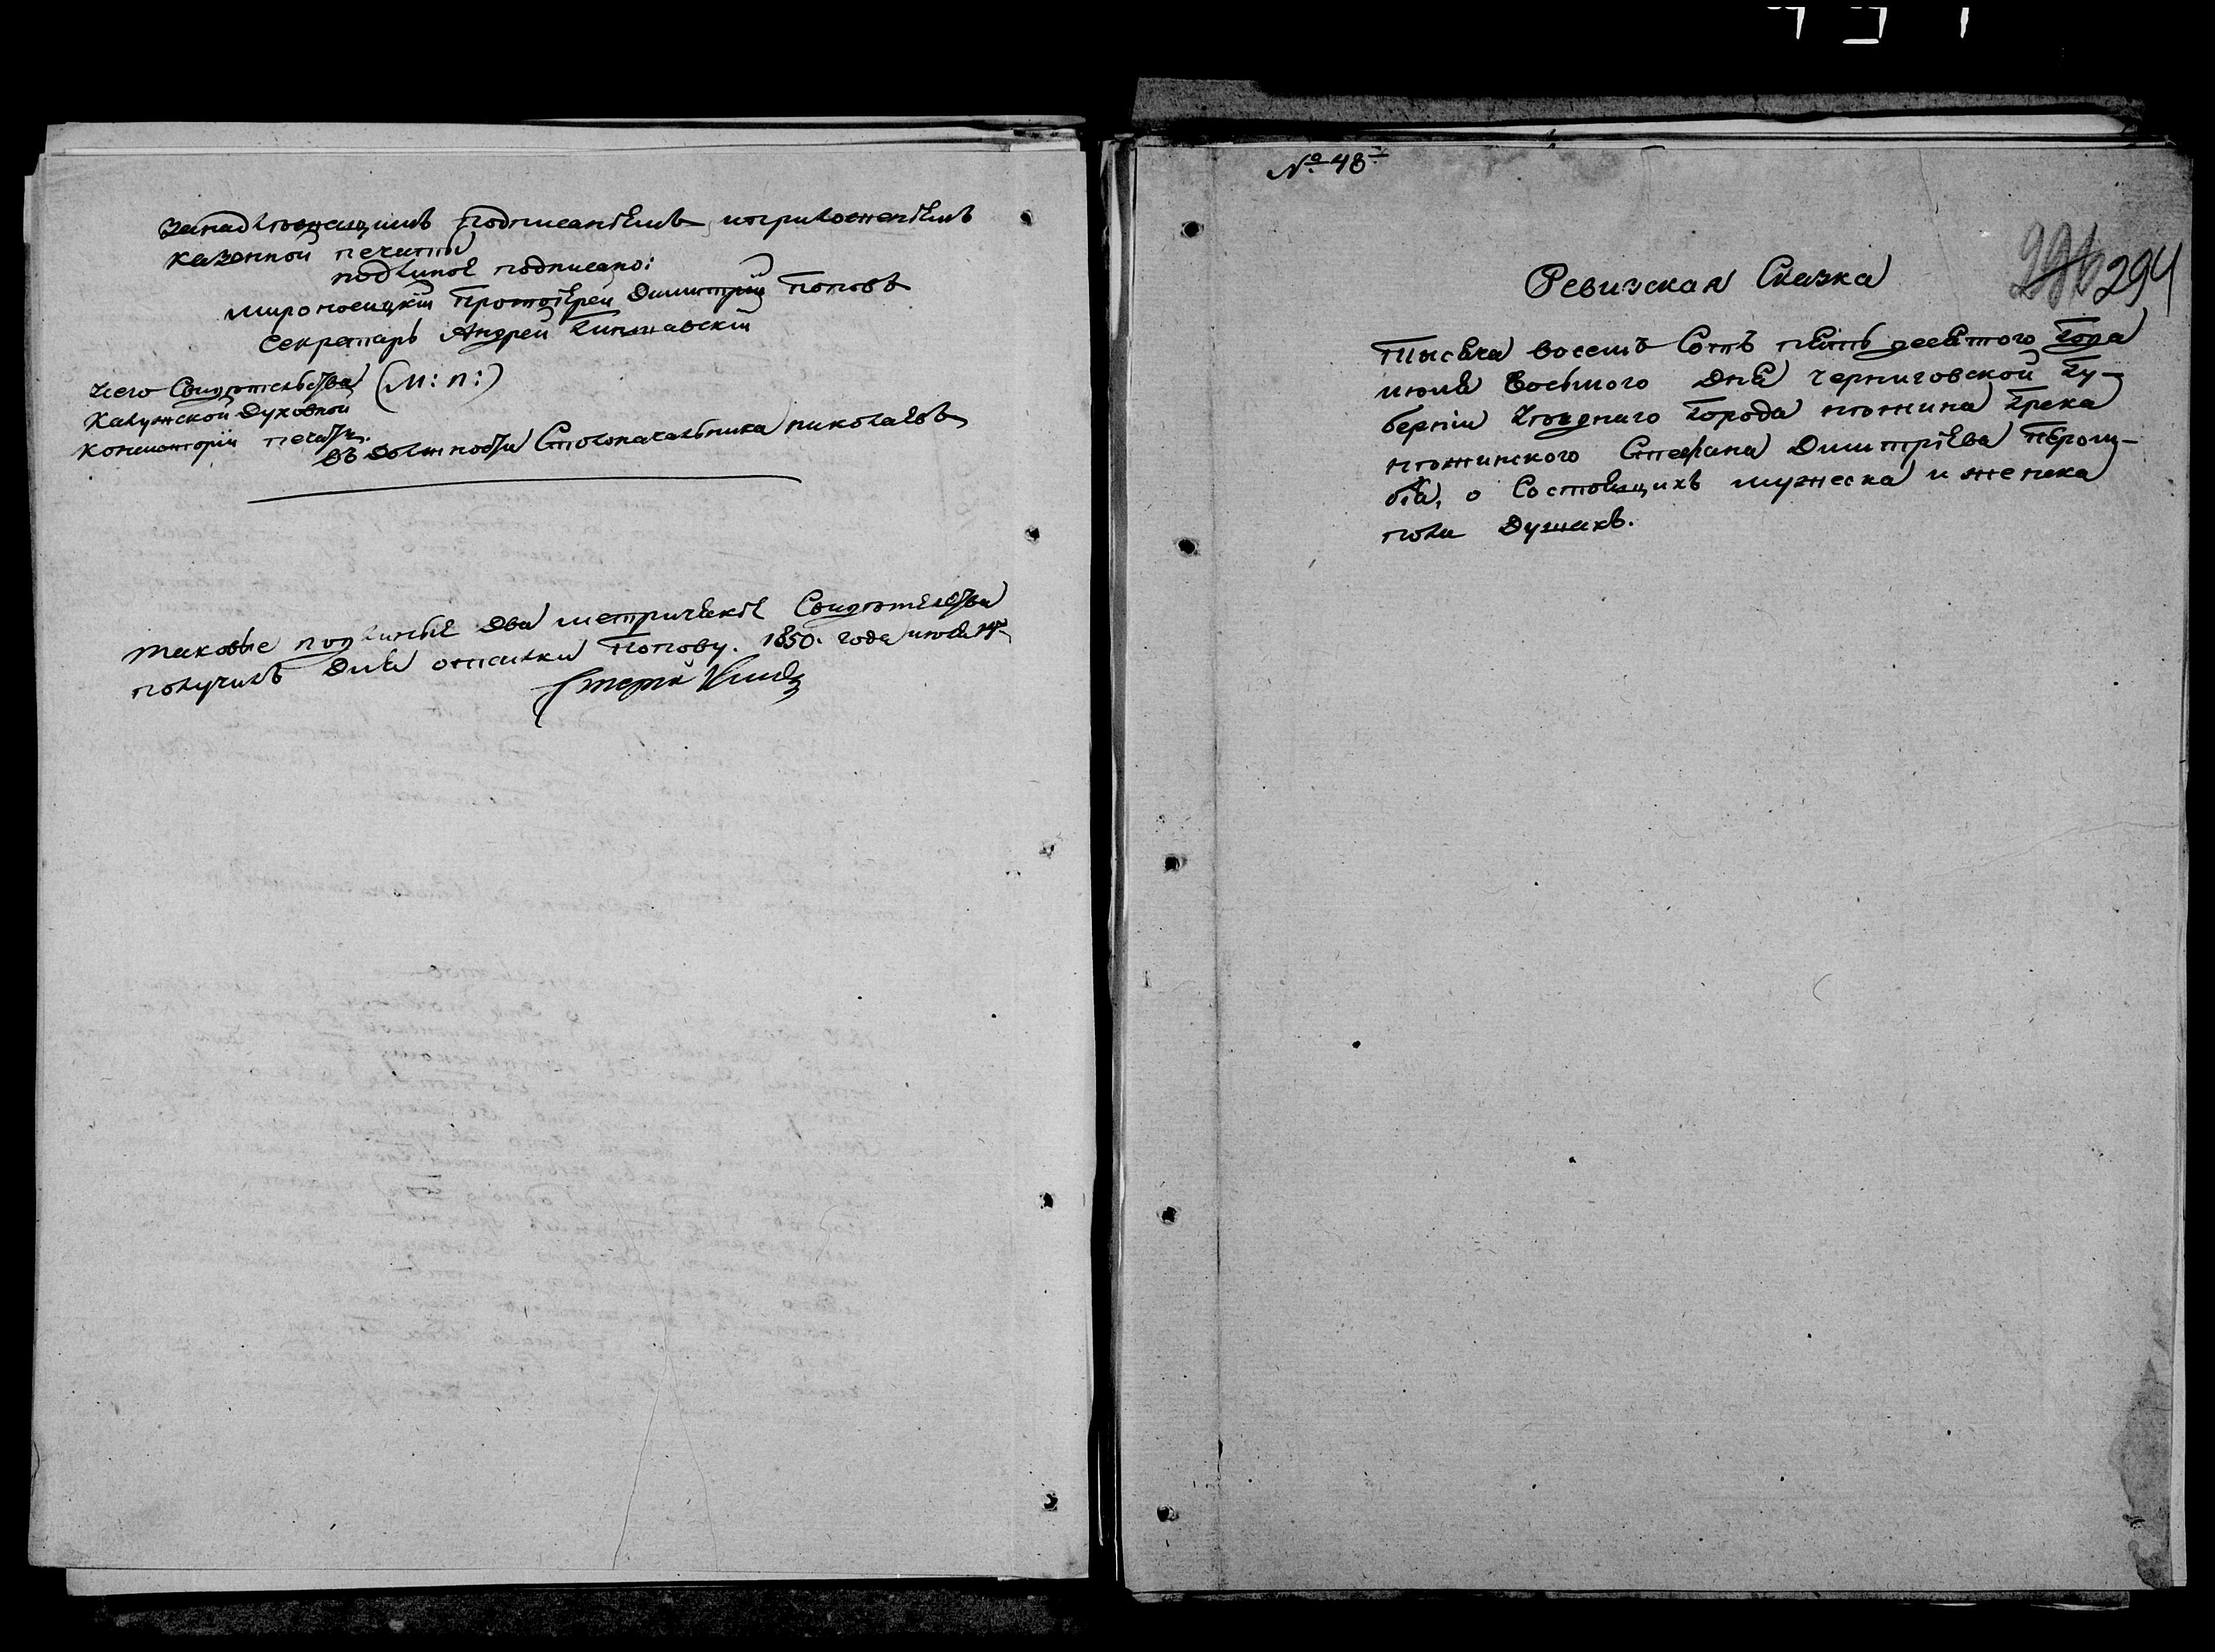 занадлѣжащимъ подписанiемъ, иприложенiемъ
казонной печати
подлиное подписано:
мироносицкiй Протоiерей Димитрiй Поповъ
Секретарь Андрей
Сего Свидѣтельства (М: п:)
Калужской Духовной
Консисторiи печать.
въ должности Столоначальника николаевъ
таковые подлиныя два метрическiя Свидѣтельства
получилъ для отсылки Попову. 1850. года июля
№ 48
Ревизская Сказка
294
Тысяча восемъ Сотъ пять десятого Года
июля восьмого дня черниговской Гу-
бернiи уѣзднаго Города нѣжина Грека
нѣжинского Стефана Димитрiева
о Состоящихъ мужеска и женска
пола душахъ.